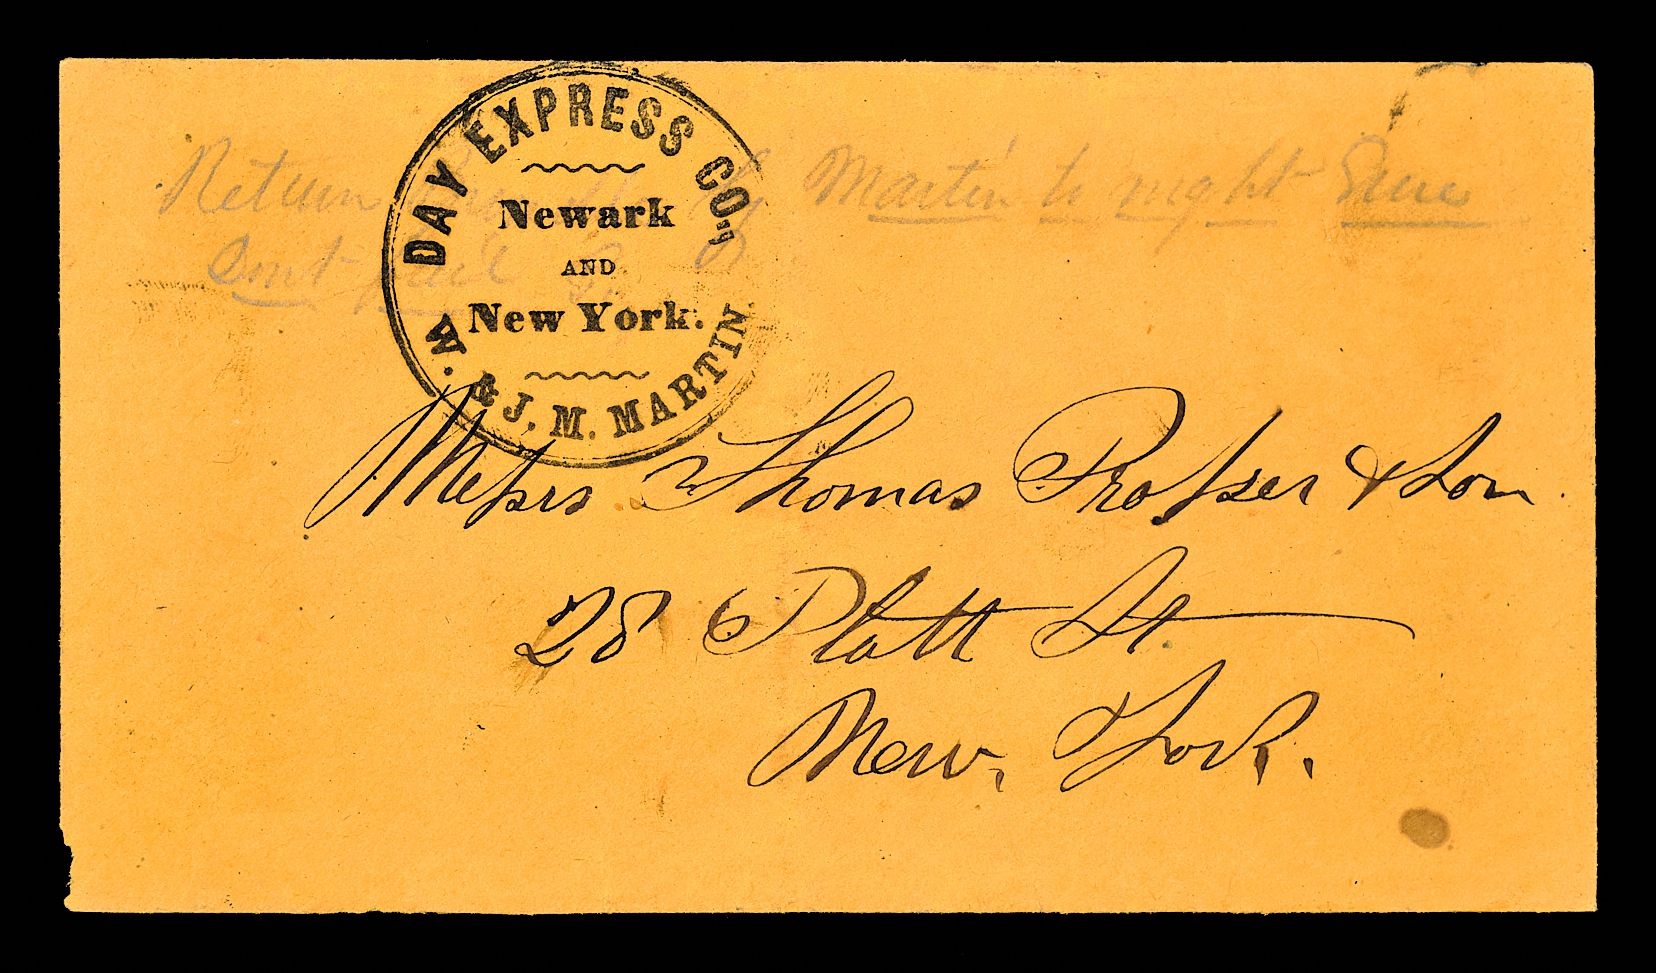 DAY EXPRESS CO.,
Newark
AND
New York.
W. & J. M. MARTIN.
Return by Martin to night Sure
Dont fail
Messrs Thomas Prosser & Son
28 Platt St
New York.